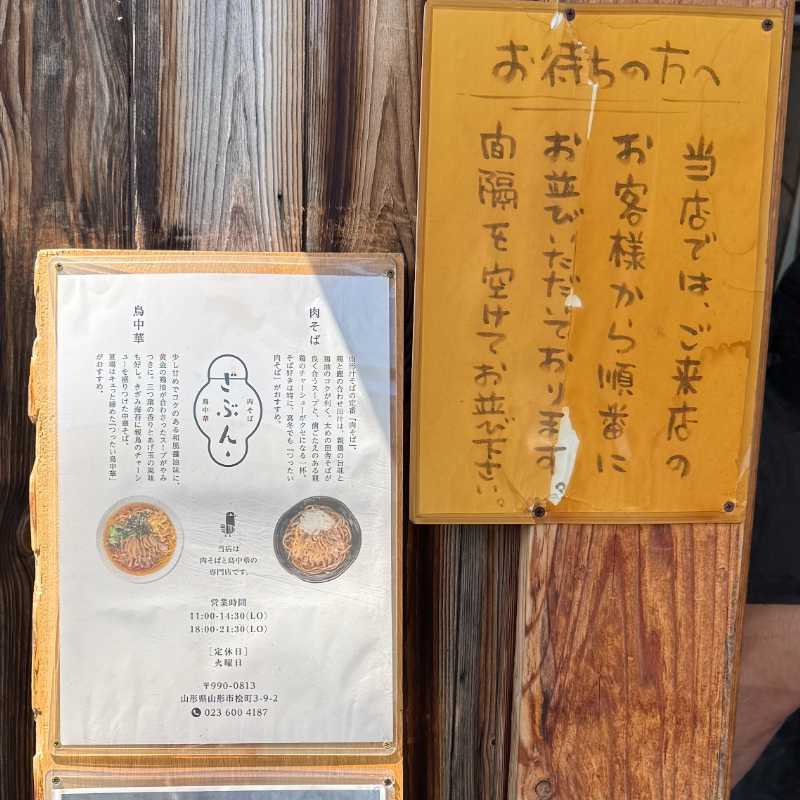 お待ちの方へ
当店では、ご来店の
お客様から順番に
お並びいただいております。
間隔を空けてお並び下さい。
肉そば
山形汁そばの定番「肉そば」。
鶏と鰹の合わせ出汁は、親鶏の旨味と
鶏油のコクが利く。太めの田舎そばが
良く合うスープと、歯ごたえのある親
鶏のチャーシューがクセになる一杯。
そば好きは特に、真冬でも「つったい
肉そば」がおすすめ。
肉そば
ざぶん。
鳥中華
鳥中華
少し甘めでコクのある和風醤油味に、
黄金の鶏油が合わさったスープがやみ
つきに。三つ葉の香りとあげ玉の風味
も好し。きざみ海苔に親鳥のチャーシ
ューを盛りつけた中華そば。
夏場はキュッと締めた「つったい鳥中華」
がおすすめ。
当店は
肉そばと鳥中華の
専門店です。
営業時間
11:00-14:30(LO)
18:00-21:30(LO)
[定休日]
火曜日
〒990-0813
山形県山形市桧町3-9-2
023 600 4187